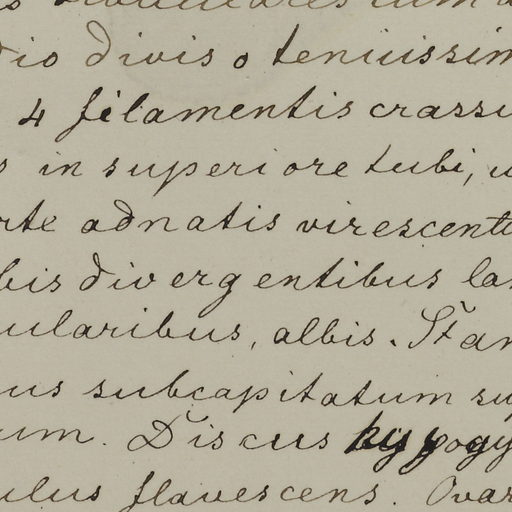 dio diviso tenuissim
4 filamentis crassi
s in superiore tubi, u
rte adnatis virescenti
bis divergentibus la
ularibus, albis. Stam
us subcapitatum su
um. Discus hypogy
ulus flavescens. Ovar